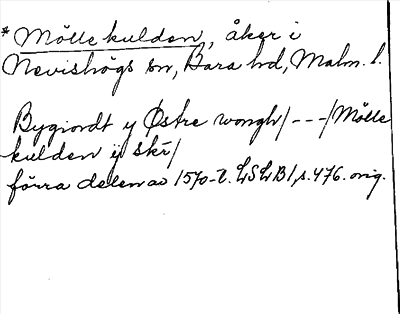 * Möllekulden, åker i
Nevishögs sn, Bara hd, Malm. l.
Bygiordt y Østre wongh/---/Mölle
kulden ij skr/
förra delen av 1570-t. LSLB 1, s. 476. orig.